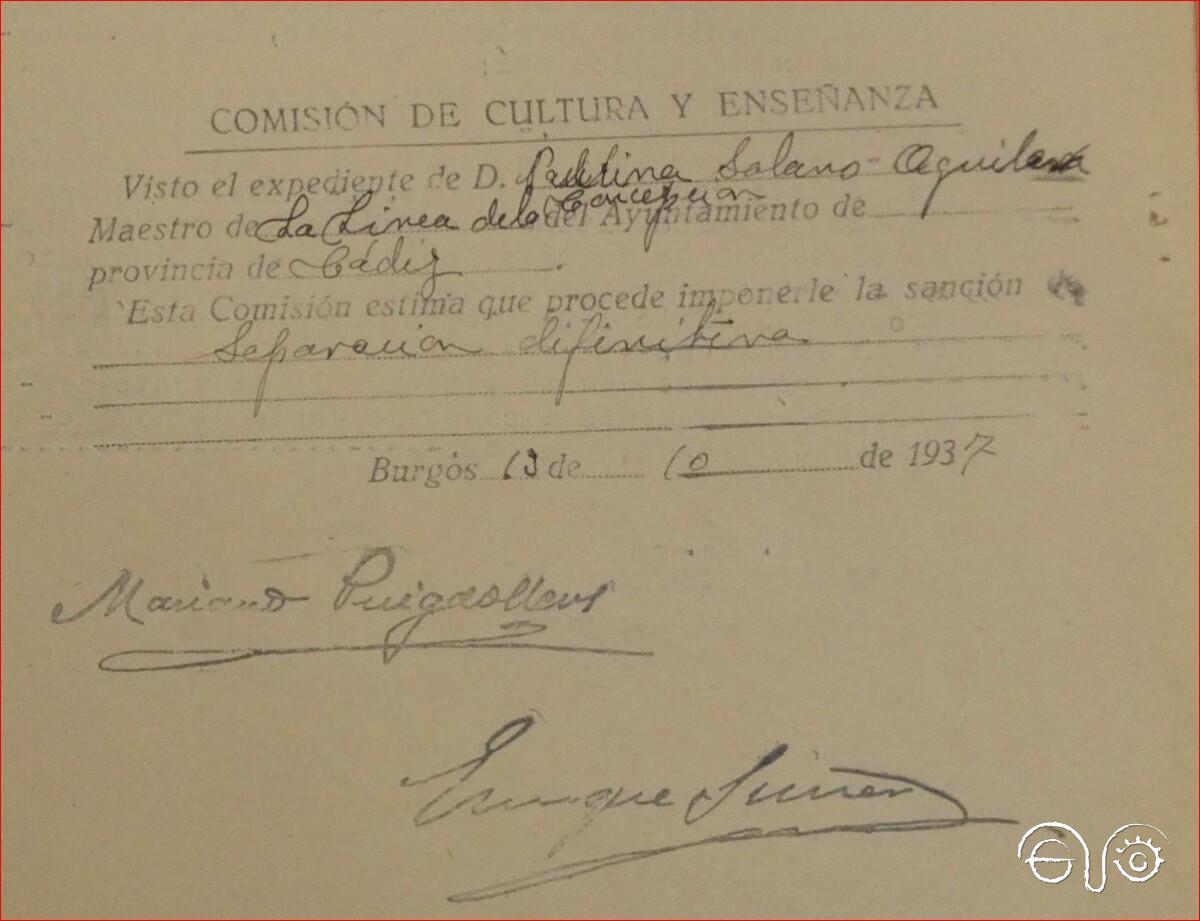 COMISIÓN DE CULTURA Y ENSEÑANZA
Visto el expediente de D. Paulina Solano Aguilera
Maestro de La Línea de la Concepcion del Ayuntamiento de
provincia de Cádiz
Esta Comisión estima que procede imponerle la sanción de
Separacion difinitiva
Burgos 13 de 10 de 1937
Mariano Puigdollers
Enrique Suñer